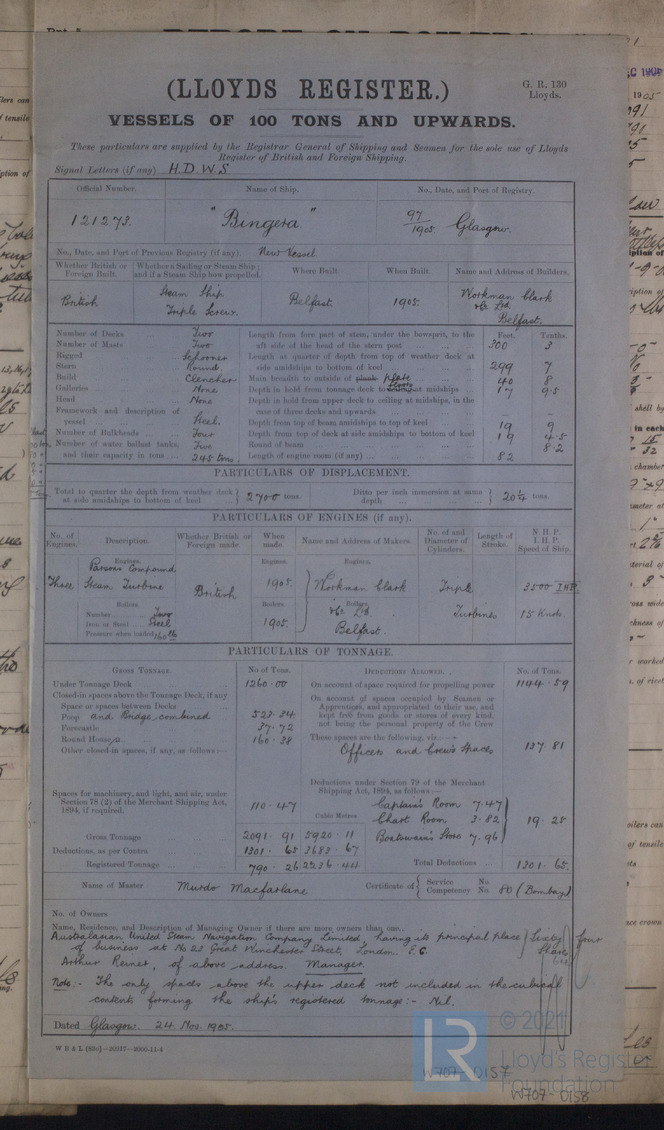 (LLOYDS REGISTER.)
G. R. 130
Lloyds.
VESSELS OF 100 TONS AND UPWARDS.
These particulars are supplied by the Registrar General of Shipping and Seamen for the sole use of Lloyds
Register of British and Foreign Shipping.
Signal Letters (if any) H.D.W.S.
Official Number. Name of Ship. No., Date, and Port of Registry.
121273. "Bingera" 97/1905 Glasgow.
No., Date, and Port of Previous Registry (if any). New Vessel
Whether British or Foreign Built. Whether a Sailing or Steam Ship; and if a Steam Ship how propelled. Where Built. When Built. Name and Address of Builders.
British Steam Ship Triple Screw. Belfast 1905. Workman Clark & Co. Ltd. Belfast.
Feet. Tenths.
Number of Decks Two Length from fore part of stem, under the bowsprit, to the
Number of Masts Two aft side of the head of the stern post 300 3
Rigged Schooner Length at quarter of depth from top of weather deck at
Stern Round. side amidships to bottom of keel 299 7
Build Clencher Main breadth to outside of plank plate 40 8
Galleries None Depth in hold from tonnage deck to floors at midships 17 9.5
Head None Depth in hold from upper deck to ceiling at midships, in the
Framework and description of case of three decks and upwards - -
vessel Steel. Depth from top of beam amidships to top of keel 19 9
Number of Bulkheads Four Depth from top of deck at side amidships to bottom of keel 19 4.5
Number of water ballast tanks, Five Round of beam 8.2
and their capacity in tons 245 tons. Length of engine room (if any) 82
PARTICULARS OF DISPLACEMENT.
Total to quarter the depth from weather deck at side amidships to bottom of keel 2700 tons. Ditto per inch immersion at same depth. 20¼ tons
PARTICULARS OF ENGINES (if any).
No. of Engines. Description. Whether British or Foreign made. When made. Name and Address of Makers. No. of and Diameter of Cylinders. Length of Stroke. N. H. P. I. H. P. Speed of Ship.
Engines. Engines. Engines.
Parsons Compound
Three Steam Turbine British 1905. Workman Clark Triple 3500 I.H.P.
Boilers Boilers & Co. Boilers Ltd. Turbines 15 Knots.
Number Two
Iron or Steel Steel 1905. Belfast.
Pressure when loaded 160 lb
PARTICULARS OF TONNAGE.
GROSS TONNAGE. No of Tons. DEDUCTIONS ALLOWED. No. of Tons.
Under Tonnage Deck 1260.00 On account of space required for propelling power 1144.59
Closed-in spaces above the Tonnage Deck, if any On account of spaces occupied by Seamen or
Space or spaces between Decks Apprentices, and appropriated to their use, and
Poop and Bridge, combined 523.34 kept free from goods or stores of every kind,
Forecastle 37.72 not being the personal property of the Crew
Round House/s 160.38 These spaces are the following, viz.:—
Other closed-in spaces, if any, as follows:— Officers and Crew's Spaces 137.81
Deductions under Section 79 of the Merchant
Shipping Act, 1894, as follows:—
Spaces for machinery, and light, and air, under
Section 78 (2) of the Merchant Shipping Act, Captain's Room 7.47
1894, if required. 110.47 Chart Room 3.82 19.25
Cubic Metres Boatswain's Store 7.96
Gross Tonnage 2091.91 5920.11
Deductions, as per Contra 1301.65 3683.67
Registered Tonnage 790.26 2236.44 Total Deductions 1301.65.
Name of Master Murdo Macfarlane Certificate of Service No. Competency No. 80 (Bombay)
No. of Owners
Name, Residence, and Description of Managing Owner if there are more owners than one.
Australasian United Steam Navigation Company Limited, having its principal place
of business at No 23 Great Winchester Street, London. E.C. Sixty four Shares
Arthur Reiner, of above address. Manager.
Note:- The only spaces above the upper deck not included in the cubical
content forming the ship's registered tonnage:- Nil.
Dated Glasgow. 24 Nov. 1905.
© 2021
LR
Lloyd's Register
Foundation
W707-0157
W707-0158